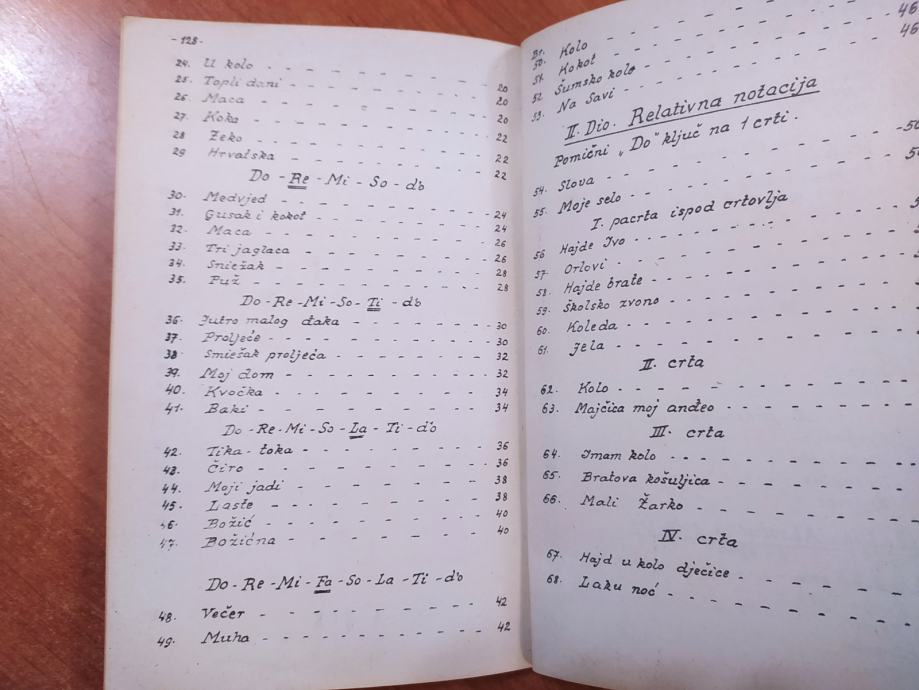 - 128 -
24. U kolo - - - - - - - - - 20
25. Topli dani - - - - - - - - 20
26. Maca - - - - - - - - - 20
27. Koka - - - - - - - - - 22
28 Zeko - - - - - - - - - 22
29 Hrvatska - - - - - - - - 22
Do - Re - Mi - So - d'o
30. Medvjed - - - - - - - - 24
31. Gusak i kokot - - - - - - - 24
32. Maca - - - - - - - - - 26
33. Tri jaglaca - - - - - - - - 26
34. Sniežak - - - - - - - - 28
35. Puž - - - - - - - - - 28
Do - Re - Mi - So - Ti - d'o
36. Jutro malog đaka - - - - - - 30
37. Proljeće - - - - - - - - 30
38. Smiešak proljeća - - - - - - 32
39. Moj dom - - - - - - - - 32
40. Kvočka - - - - - - - - 34
41. Baki - - - - - - - - - 34
Do - Re - Mi - So - La - Ti - d'o
42. Tika - toka - - - - - - - 36
43. Ćiro - - - - - - - - - 36
44. Moji jadi - - - - - - - - 38
45. Laste - - - - - - - - 38
46. Božić - - - - - - - - 40
47. Božićna - - - - - - - - 40
Do - Re - Mi - Fa - So - La - Ti - d'o
48. Večer - - - - - - - - 42
49. Muha - - - - - - - - 42
Br.
50. Kolo - - - - - - - - 46
51. Kokot - - - - - - - - 46
52. Šumsko kolo - - - - - -
53. Na Savi - - - - - - -
II. Dio. Relativna notacija
Pomični „Do" ključ na 1 crti.
54. Slova - - - - - - - - 50
55. Moje selo - - - - - - - 50
I. pacrta ispod crtovlja
56 Hajde Ivo - - - - - - -
57. Orlovi - - - - - - - -
58. Hajde brate - - - - - -
59. Školsko zvono - - - - - -
60. Koleda - - - - - - - -
61. Jela - - - - - - - - -
II. crta
62. Kolo - - - - - - - - -
63. Majčica moj anđeo - - - - -
III. crta
64. Imam kolo - - - - - - -
65. Bratova košuljica - - - - -
66. Mali Žarko - - - - - -
IV. crta
67. Hajd u kolo dječice - - - -
68. Laku noć - - - - - - -